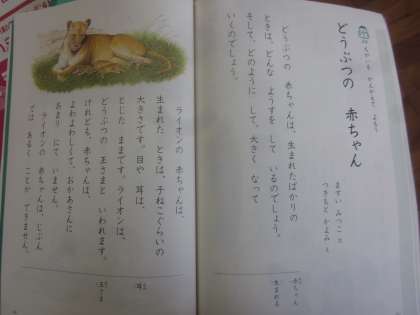 どうぶつの 赤ちゃん
ますい みつこ 文
どうぶつの 赤ちゃんは、生まれたばかりの
ときは、どんな ようすを して いるのでしょう。
そして、どのように して、大きく なって
いくのでしょう。
ライオンの 赤ちゃんは、
生まれた ときは、子ねこぐらいの
大きさです。目や 耳は、
とじた ままです。ライオンは、
どうぶつの 王さまと いわれます。
けれども、赤ちゃんは、
よわよわしくて、おかあさんに
あまり にて いません。
ライオンの 赤ちゃんは、じぶん
では あるく ことが できません。
赤ちゃん
生まれる
耳
王さま